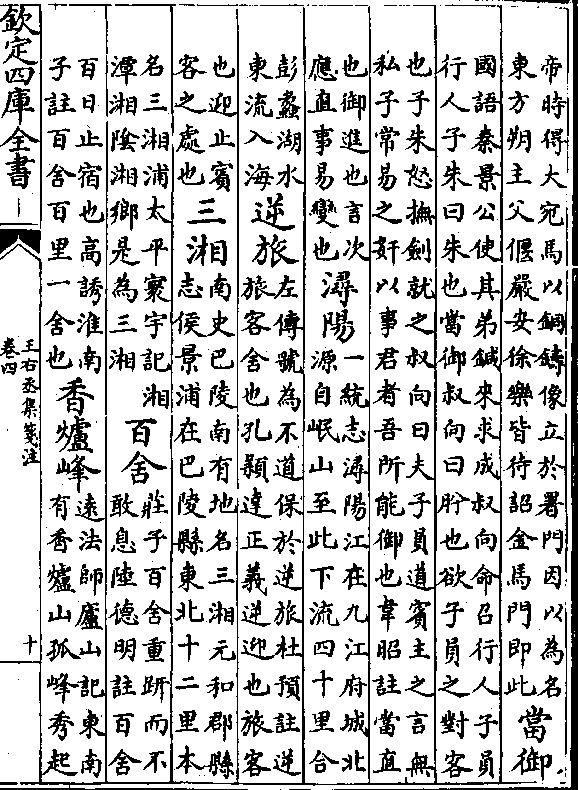 帝時得大宛馬以銅鑄像立於署門因以為名
東方朔主父偃嚴安徐樂皆待詔金馬門即此
當御
國語秦景公使其弟鍼來求成叔向命召行人子員
行人子朱曰朱也當御叔向曰肸也欲子員之對客
也子朱怒撫劍就之叔向曰夫子員道賓主之言無
私子常易之姧以事君者吾所能御也韋昭註當直
也御進也言次
應直事易變也
潯陽
一統志潯陽江在九江府城北
源自岷山至此下流四十里合
彭蠡湖水
東流入海
逆旅
左傳虢為不道保於逆旅杜預註逆
旅客舍也孔穎達正義逆迎也旅客
也迎止賓
客之處也
三湘
南史巴陵南有地名三湘元和郡縣
志侯景浦在巴陵縣東北十二里本
名三湘浦太平寰宇記湘
潭湘陰湘鄉是為三湘
百舍
莊子百舍重趼而不
敢息陸德明註百舍
百日止宿也高誘淮南
子註百舍百里一舍也
香爐峰
遠法師廬山記東南
有香爐山孤峰秀起
欽定四庫全書
王右丞集箋注
卷四
十